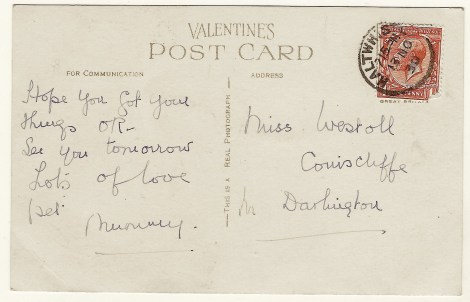 VALENTINE'S
POST CARD
FOR COMMUNICATION
ADDRESS
Hope you got your
things OK -
See you tomorrow
Lots of love
pet
Mummy.
THIS IS A REAL PHOTOGRAPH
Miss Westoll
Coniscliffe
Nr Darlington
HALTWHIS
NO
30
GREAT BRITAIN